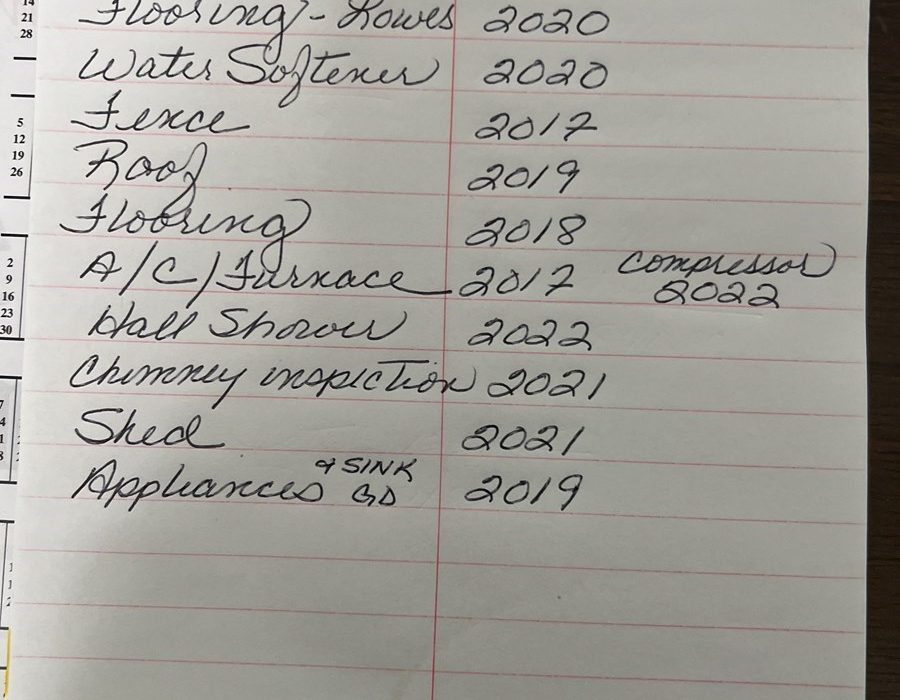 14
21
28
5
12
19
26
2
9
16
23
30
Flooring - Lowes 2020
Water Softener 2020
Fence 2017
Roof 2019
Flooring 2018
A/C/Furnace 2017 Compressor 2022
Hall Shower 2022
Chimney inspection 2021
Shed 2021
Appliances & SINK GD 2019